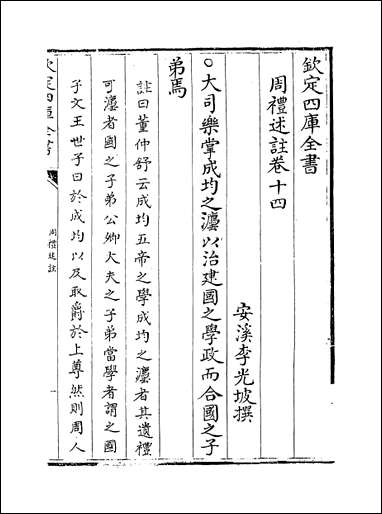 欽定四庫全書
周禮述註卷十四
安溪李光坡撰
○大司樂掌成均之灋以治建國之學政而合國之子
弟焉
註曰董仲舒云成均五帝之學成均之灋者其遺禮
可灋者國之子弟公卿大夫之子弟當學者謂之國
子文王世子曰於成均以及取爵於上尊然則周人
欽定四庫全書
周禮述註
一